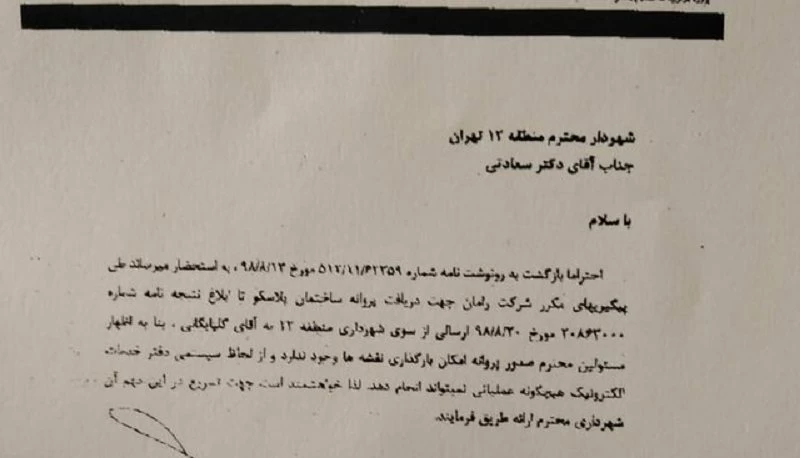 شهردار محترم منطقه ۱۲ تهران
جناب آقای دکتر سعادتی
با سلام
احتراما بازگشت به رونوشت نامه شماره ۵۱۲/۱۱/۶۲۳۵۹ مورخ ۹۸/۸/۱۳ ، به استحضار میرساند طی
پیگیریهای مکرر شرکت رامان جهت دریافت پروانه ساختمان پلاسکو تا ابلاغ نتیجه نامه شماره
۲۰۸۶۳۰۰۰ مورخ ۹۸/۸/۲۰ ارسالی از سوی شهرداری منطقه ۱۲ به آقای گلپایگانی ، بنا به اظهار
مسئولین محترم صدور پروانه امکان بارگذاری نقشه ها وجود ندارد و از لحاظ سیستمی دفتر خدمات
الکترونیک هیچگونه عملیاتی نمیتواند انجام دهد. لذا خواهشمند است جهت تسریع در این مهم آن
شهرداری محترم ارائه طریق فرمایند.